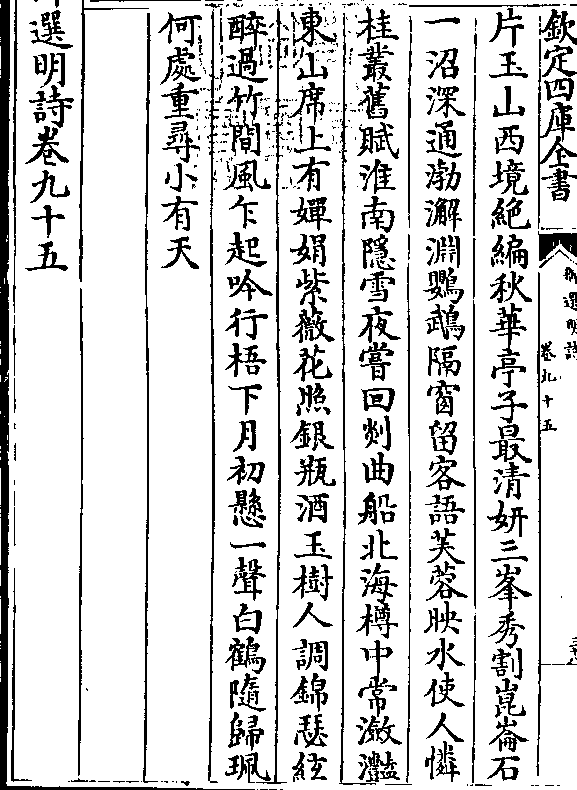 欽定四庫全書
御選明詩
卷九十五
片玉山西境絶編秋華亭子最清妍三峯秀割崑崙石
一沼深通渤澥淵鸚鵡隔窗留客語芙蓉映水使人憐
桂叢舊賦淮南隱雪夜嘗回剡曲船北海樽中常瀲灔
東山席上有嬋娟紫薇花照銀瓶酒玉樹人調錦瑟絃
醉過竹間風乍起吟行梧下月初懸一聲白鶴隨歸珮
何處重尋小有天
選明詩卷九十五